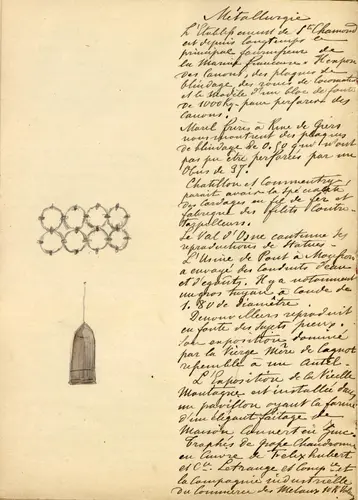 Métallurgie
L'Etablissement de St Chamond
est depuis longtemps le
principal fournisseur de
la Marine française. Il expose
des Canons, des plaques de
blindage, des roues de locomotives
et le modèle d'un bloc de fonte
de 1000 kg pour perforer des
Canons.
Marel frères à Rive de Giers
nous montrent des plaques
de blindage de 0.50 qui n'ont
pas pu être perforées par un
Obus de 37.
Chatillon et Commentry
parait avoir la spécialité
des Cordages en fil de fer et
fabrique des filets Contre
torpilleurs.
Le Val d'Osne continue ses
reproductions de Statues.
L'Usine de Pont à Mousson
a envoyé des Conduits d'eau
et d'égouts. Il y a notamment
un gros tuyau à Coude de
1.80 de diamètre.
Denonvilliers reproduit
en fonte des Sujets pieux.
Son exposition dominée
par la Vierge Mère de
ressemble à un Autel.
L'Exposition de la Vieille
Montagne est installée dans
un pavillon ayant la forme
d'un élégant faitage de
Maison Couvert en Zinc.
Trophés de gope Chaudronnerie
en Cuivre de Felix hubert
et Cie. Letrange et Compie et
la Compagnie industrielle
du Commerce des Métaux